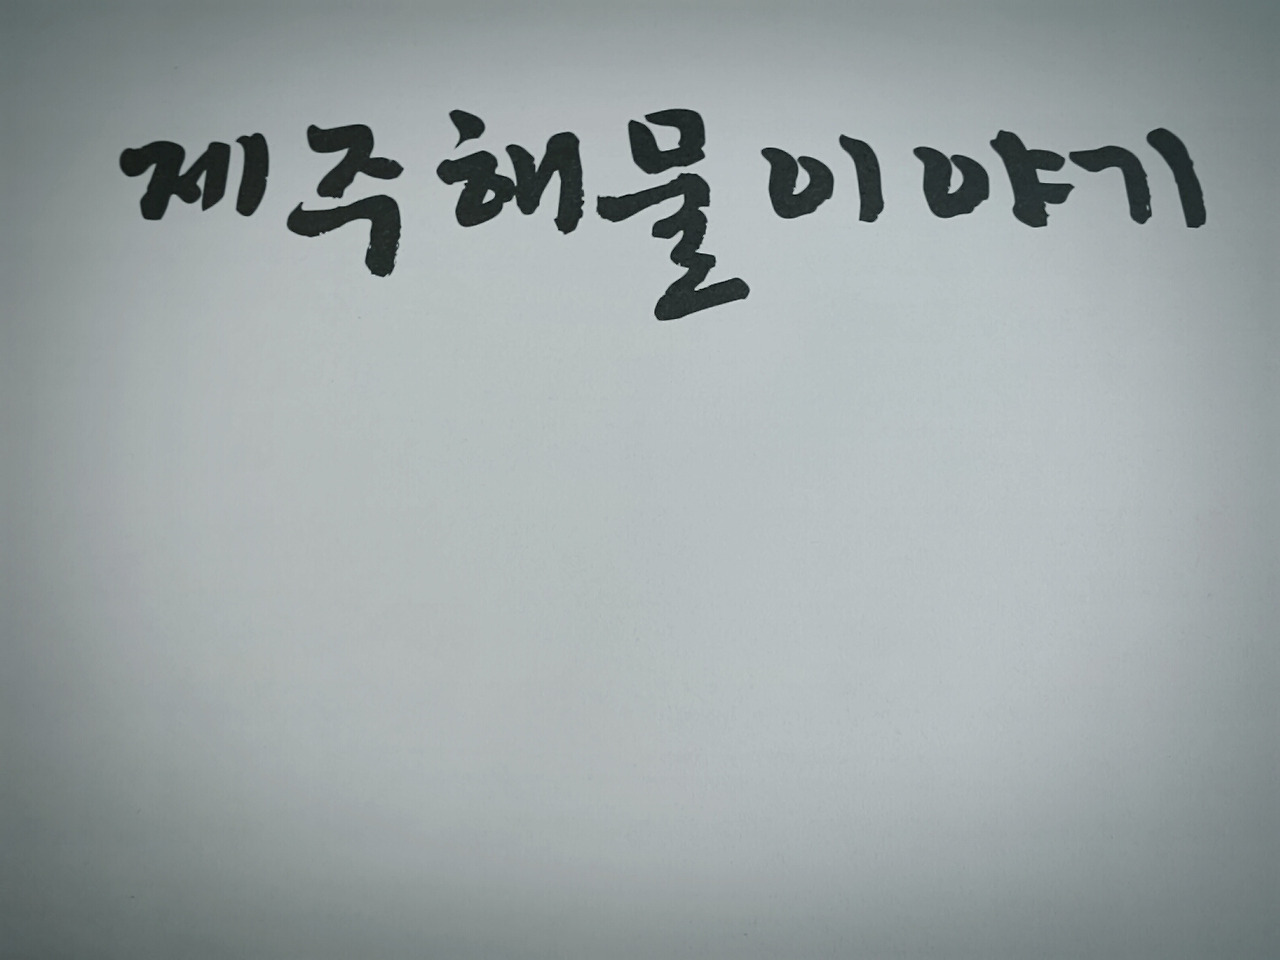 제주해물이야기